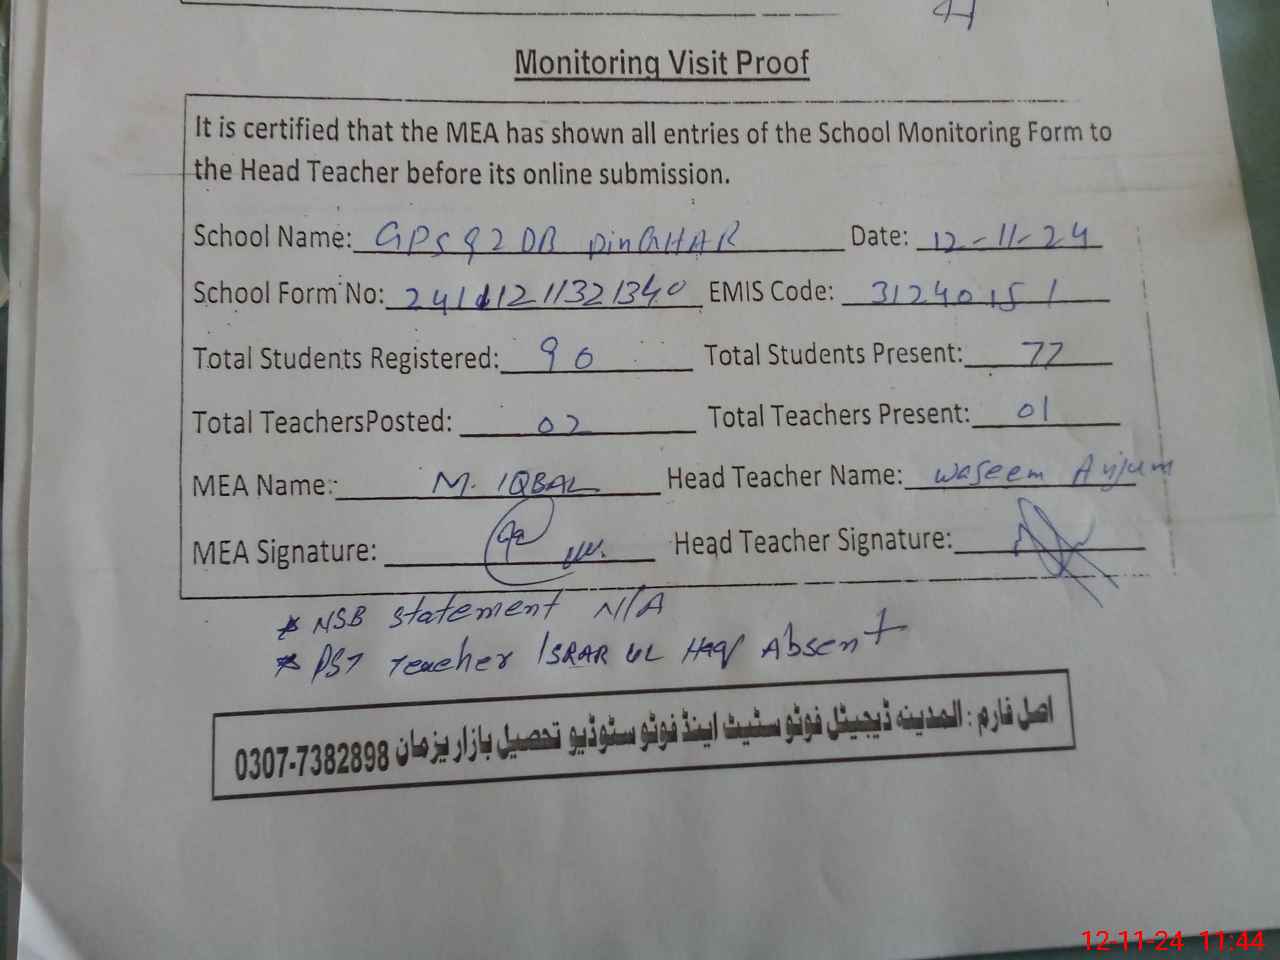 Monitoring Visit Proof
It is certified that the MEA has shown all entries of the School Monitoring Form to
the Head Teacher before its online submission.
School Name: GPS 92 DB DinGHAR Date: 12-11-24
School Form No: 24111211321340 EMIS Code: 31240151
Total Students Registered: 90 Total Students Present: 77
Total TeachersPosted: 02 Total Teachers Present: 01
MEA Name: M. IQBAL Head Teacher Name: Waseem Anjum
MEA Signature: Head Teacher Signature:
* NSB Statement N/A
* PST Teacher ISRAR UL Haq Absent
اصل فارم : المدینہ ڈیجیٹل فوٹو سٹیٹ اینڈ فوٹو سٹوڈیو تحصیل بازار یزمان 0307-7382898
12-11-24 11:44